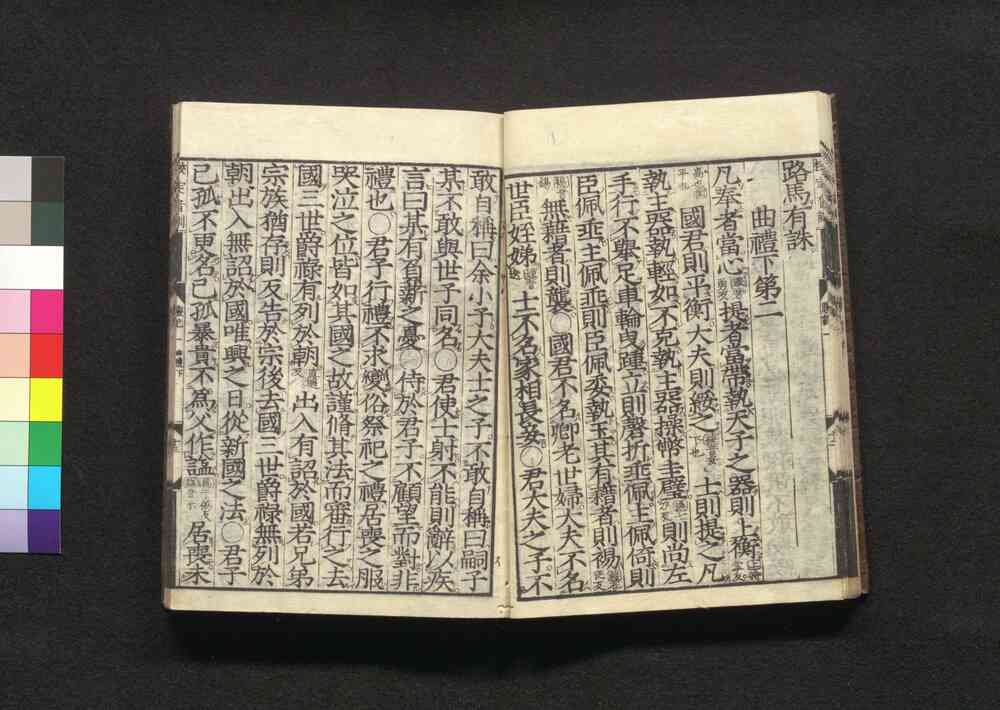 路馬有誅
曲禮下第二
凡奉者當心提者當帶執天子之器則上衡
國君則平衡大夫則綏之士則提之凡
執主器執輕如不克執主器操幣圭璧則尚左
手行不舉足車輪曳踵立則磬折垂佩主佩倚則
臣佩垂主佩垂則臣佩委執玉其有藉者則裼
無藉者則襲○國君不名卿老世婦大夫不名
世臣姪娣士不名家相長妾○君大夫之子不
敢自稱曰余小子大夫士之子不敢自稱曰嗣子
某不敢與世子同名○君使士射不能則辭以疾
言曰某有負薪之憂○侍於君子不顧望而對非
禮也○君子行禮不求變俗祭祀之禮居喪之服
哭泣之位皆如其國之故謹脩其法而審行之去
國三世爵祿有列於朝出入有詔於國若兄弟
宗族猶存則反告於宗後去國三世爵祿無列於
朝出入無詔於國唯興之日從新國之法○君子
已孤不更名已孤暴貴不為父作謚居喪未